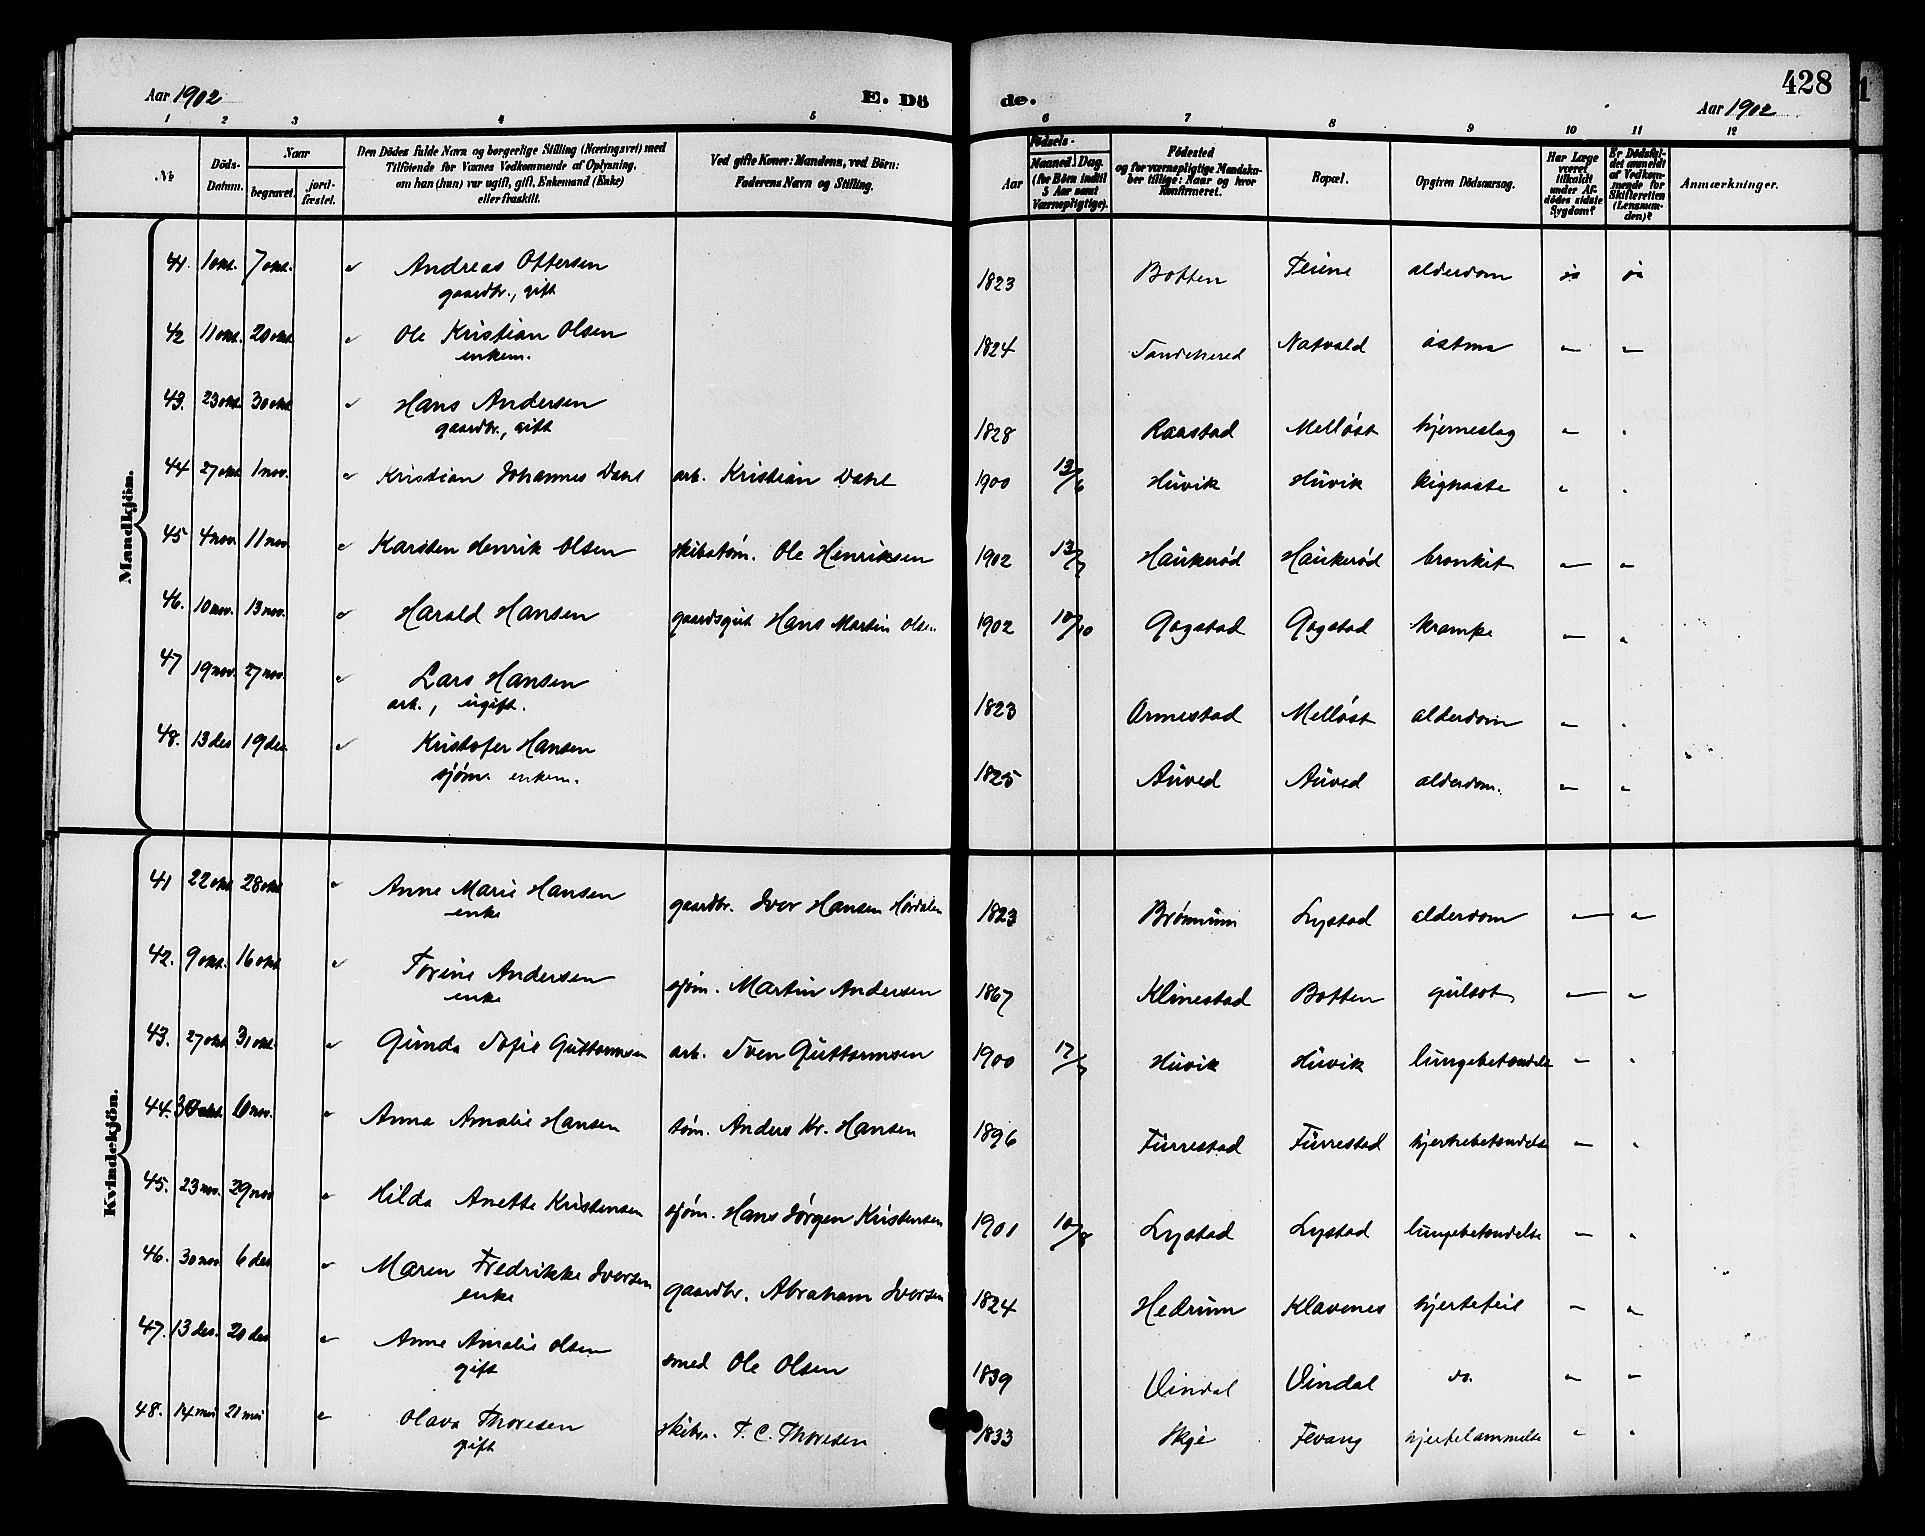 428
Aar 1902
E. Dö
de.
Aar 1902
1 2 3 4 5 6 7 8 9 10 11 12
№
Döds-
Datum.
Naar
begravet.
jord-
fæstet.
Den Dödes fulde Navn og borgerlige Stilling (Næringsvei) med
Tilföiende for Voxnes Vedkommende af Oplysning,
om han (hun) var ugift, gift, Enkemand (Enke)
eller fraskilt.
Ved gifte Koner: Mandens, ved Börn:
Faderens Navn og Stilling.
Födsels-
Aar
Maaned. Dag.
(for Börn indtil
5 Aar samt
Værnepligtige).
Födested
og for værnepligtige Mandska-
ber tillige: Naar og hvor
Konfirmeret.
Bopæl.
Opgiven Dödsaarsag.
Har Læge
været
tilkaldt
under Af-
dödes sidste
Sygdom?
Er Dödsfal-
det anmeldt
af Vedkom-
mende for
Skifteretten
(Lensman-
den)?
Anmærkninger.
Mandkjön.
41. 1 okt. 7 okt. " Andreas Ottersen 1823 Botten Feine alderdom ja ja
gaardbr., gift
42 11 okt. 20 okt. " Ole Kristian Olsen 1824 Sandeherred Natvald astma " "
enkem.
43. 23 okt. 30 okt. " Hans Andersen 1828 Raastad Melløst hjerneslag " "
gaardbr., gift
44 27 okt. 1 nov. " Kristian Johannes Dahl arb. Kristian Dahl 1900 13/6 Huvik Huvik kighoste " "
45 4 nov. 11 nov. " Karsten Henrik Olsen skibstøm. Ole Henriksen 1902 13/7 Haukerød Haukerød bronkit " "
46. 10 nov. 13 nov. " Harald Hansen gaardsgut Hans Martin Olsen 1902 10/10 Gogstad Gogstad krampe " "
47 19 nov. 27 nov. " Lars Hansen 1823 Ormestad Melløst alderdom " "
arb., ugift.
48. 13 des 19 des. " Kristofer Hansen 1825 Auved Auved alderdom. " "
sjøm. enkem.
Kvindekjön.
41 22 okt 28 okt " Anne Marie Hansen gaardbr. Iver Hansen Hørdalen 1823 Brønnum Lystad alderdom " "
enke
42. 9 okt. 16 okt " Torine Andersen sjøm. Martin Andersen 1867 Klinestad Botten gulsot " "
enke
43. 27 okt 31 okt. " Gunda Sofie Guttormsen arb. Sven Guttormsen 1900 Huvik Huvik lungebetændelse " "
44. 6 nov. " Anna Amalie Hansen tøm. Anders Kr. Hansen 1896 Furrestad Furrestad hjertebetændelse " "
45. 23 nov. 29 nov " Hilda Anette Kristensen sjøm. Hans Jørgen Kristensen 1901 10/8 Lystad Lystad lungebetændelse " "
46. 30 nov 6 des " Maren Fredrikke Iversen gaardbr. Abraham Iversen 1824 Hedrum Klavenes hjertefeil " "
enke
47. 13 des. 20 des " Anne Amalie Olsen smed Ole Olsen 1839 Vindal Vindal do. " "
gift
48. 14 mai 21 mai " Olava Thoresen skibsr. T. C. Thoresen 1833 Skje Fevang hjertelammelse " "
gift